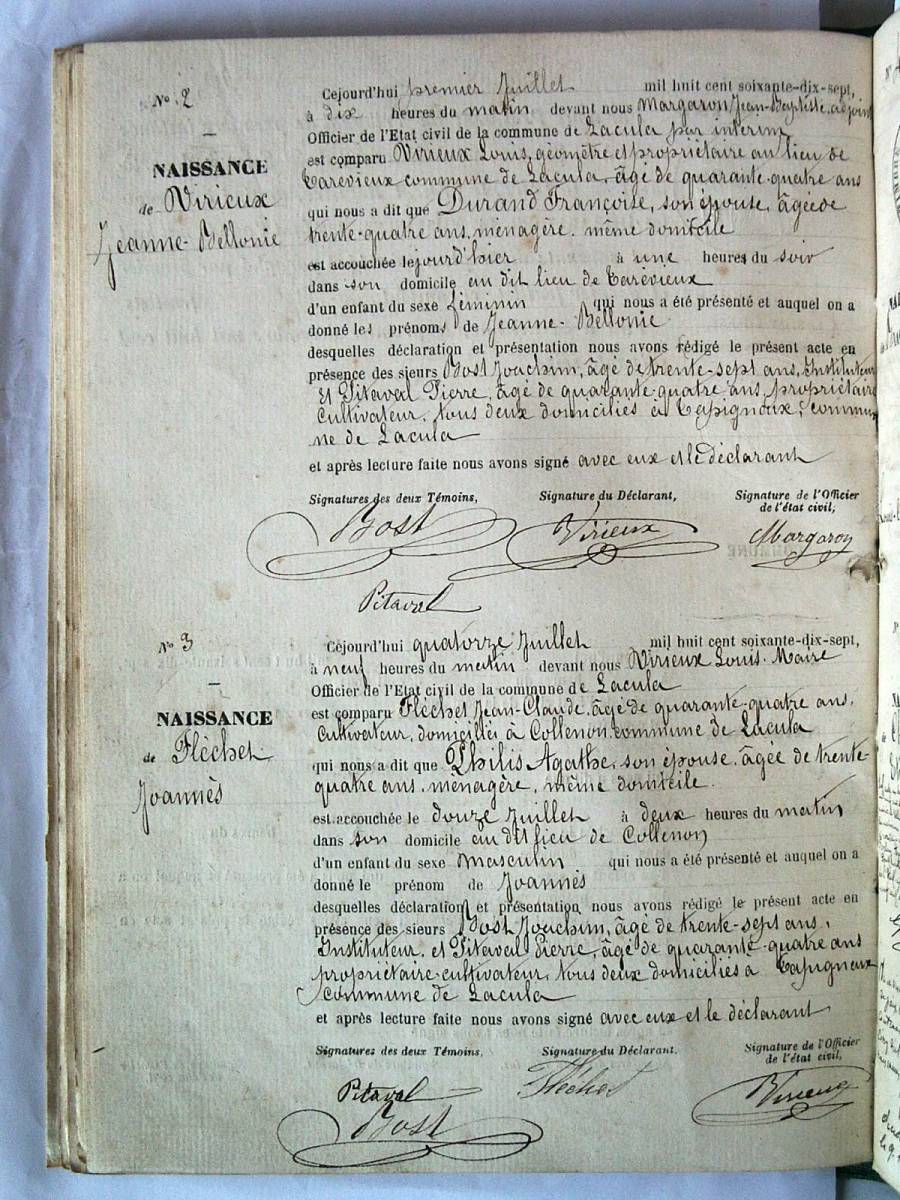 No. 2
NAISSANCE
de Virieux
Jeanne-Bellonie
Cejourd'hui premier Juillet mil huit cent soixante-dix-sept,
à dix heures du matin devant nous Margaron Jean-Baptiste, adjoint
Officier de l'Etat civil de la commune de Lacula par interim
est comparu Virieux Louis, géomètre et propriétaire au lieu de
Carévieux commune de Lacula, âgé de quarante-quatre ans
qui nous a dit que Durand Françoise, son épouse, âgée de
trente-quatre ans, ménagère, même domicile
est accouchée lejourd'hier à une heures du soir
dans son domicile au dit lieu de Carévieux
d'un enfant du sexe féminin qui nous a été présenté et auquel on a
donné les prénoms de Jeanne-Bellonie
desquelles déclaration et présentation nous avons rédigé le présent acte en
présence des sieurs Bost Joachim, âgé de trente-sept ans, Instituteur
Et Pitaval Pierre, âgé de quarante-quatre ans, propriétaire
Cultivateur, tous deux domiciliés à Capignoux, commu
ne de Lacula
et après lecture faite nous avons signé avec eux et le déclarant
Signatures des deux Témoins, Signature du Déclarant, Signature de l'Officier
de l'état civil,
Bost Virieux Margaron
Pitaval
No. 3
NAISSANCE
de Fléchet
Joannès
Cejourd'hui quatorze Juillet mil huit cent soixante-dix-sept,
à neuf heures du matin devant nous Virieux Louis, Maire
Officier de l'Etat civil de la commune de Lacula
est comparu Fléchet Jean-Claude, âgé de quarante-quatre ans,
Cultivateur, domicilié à Collenon commune de Lacula
qui nous a dit que Philis Agathe, son épouse, âgée de trente-
quatre ans, ménagère, même domicile.
est accouchée le douze Juillet à deux heures du matin
dans son domicile au dit lieu de Collenon
d'un enfant du sexe Masculin qui nous a été présenté et auquel on a
donné le prénom de Joannès
desquelles déclaration et présentation nous avons rédigé le présent acte en
présence des sieurs Bost Joachim, âgé de trente-sept ans,
Instituteur, et Pitaval Pierre, âgé de quarante-quatre ans
propriétaire-cultivateur, tous deux domiciliés à Capigneux
commune de Lacula
et après lecture faite nous avons signé avec eux et le déclarant
Signatures des deux Témoins, Signature du Déclarant, Signature de l'Officier
de l'état civil,
Pitaval Fléchet Virieux
Bost